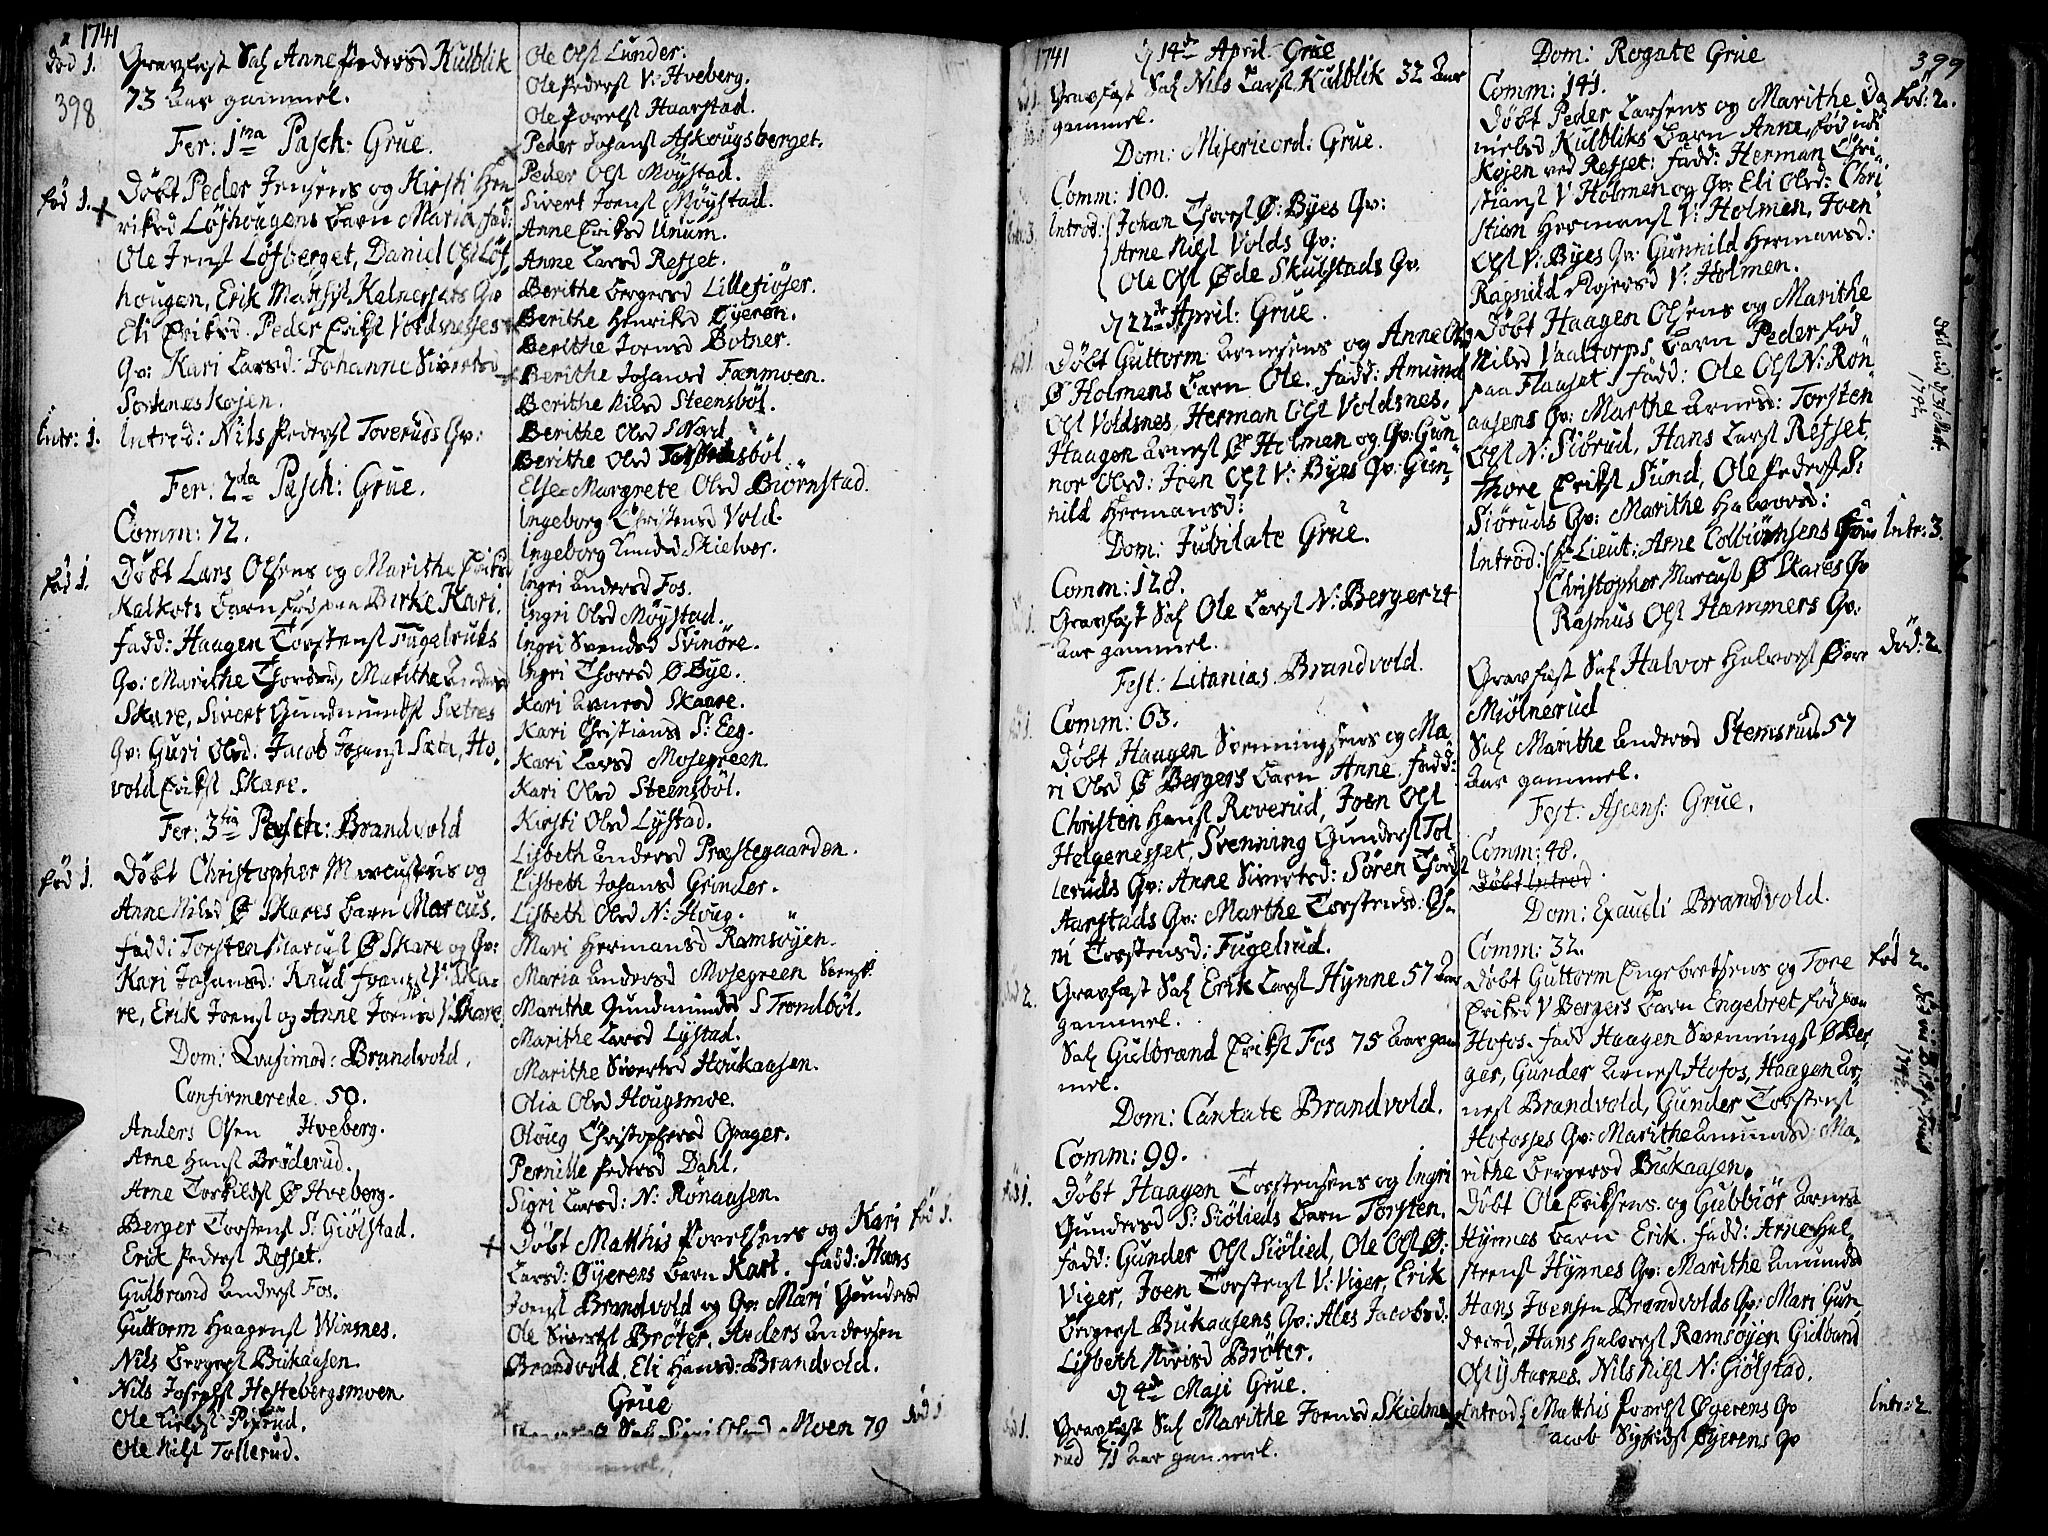 1741
död 1.
398
Gravfæst Sal Anne Pedersd Kulblik
73 Aar gammel.
Fer: 1ma Pasch: Grue.
föd 1.
Döbt Peder Jensens og Kirsti Hen
riksd Löfhougens barn Maria fad:
Ole Jensl Löfberget, Daniel Olsl Löf
hougen, Erik Mattisl Kalnessets Qv
Eli Eriksd. Peder Eriksl Voldsnesses
Qv: Kari Larsd: Johanne Sivertsd
Sortenæskojen.
Intr: 1.
Introd: Nils Pedersl Toveruds Qv:
Fer: 2da Pasch: Grue.
Comm: 72.
föd 1.
Döbt Lars Olsens og Marithe Eriksd
Kalkots barn föd paa Birke Kari.
fadd: Haagen Torstensl Fugelruds
Qv: Marithe Thorsd, Marithe Andersd
Skare, Sivert Gundmundsl Sætres
Qv: Guri Olsd. Jacob Johansl Sæter, Ho,
vold Eriksl Skare.
Fer: 3tia Pasch: Brandvold
föd 1.
Döbt Christopher Marcusens og
Anne Nilsd Ø Skares barn Marcus.
fadd: Torsten Marcusl Ø Skare og Qv:
Kari Johansd: Knud Franzsl V: Ska,
re, Erik Joensl og Anne Joensd V: Skare.
Dom: Qvasimod: Brandvold.
Confirmerede 50.
Anders Olsen Hveberg.
Arne Hansl Bröderud.
Arne Torkildsl Ø Hveberg.
Berger Torstensl S: Giölstad.
Erik Pedersl Refset.
Gulbrand Andersl Fos.
Guttorm Haagensl Winsnes.
Nils Bergersl Bukaasen.
Nils Josephsl Hestebergsmoen
Ole Pixrud.
Ole Nilsl Tollerud.
Ole Olsl Lunder:
Ole Pedersl V: Hveberg.
Ole Povelsl Haarstad.
Peder Johansl Askougsberget.
Peder Olsl Möystad.
Sivert Joensl Möystad.
Anne Eriksd Unum.
Anne Larsd Refset.
Berithe Bergersd Lillefiöser.
Berithe Henriksd Öyeren.
Berithe Joensd Botner.
Berithe Johansd Fænmoen.
Berithe Nilsd Steensböl.
Berithe Olsd S Nord
Berithe Olsd
Else Margrete Olsd Biörnstad.
Ingeborg Christensd Vold.
Ingeborg Knudsd Skielver.
Ingri Andersd Fos.
Ingri Olsd Möystad.
Ingri Svendsd Svinöre.
Ingri Thoresd Ø Bye.
Kari Arnesd Skaare.
Kari Christiansd S: Eeg.
Kari Larsd Mosegreen
Kari Olsd Steensböl.
Kirsti Olsd Lystad.
Lisbeth Andersd Præstegaarden.
Lisbeth Johansd Grinder.
Lisbeth Olsd N: Houg.
Mari Hermansd Ramsöyen.
Maria Andersd Mosegreen Svensk
Marithe Gundmundsd S Trondböl.
Marithe Larsd Lystad.
Marithe Sivertsd Houkaasen.
Olia Olsd Hougsmoe.
Oloug Christophersd Opager.
Pernille Pedersd Dahl.
Sigri Larsd: N: Rönaasen.
föd 1.
Döbt Matthis Povelsens og Kari
Larsd: Öyerens barn Kari. fadd: Hans
Joensl Brandvold og Qv: Mari Gundersd
Ole Sivertsl Bröter. Anders Andersen
Brandvold. Eli Hansd: Brandvold.
Grue
död 1
Sal Siri Olsd Moen 79
Aar gammel.
1741
d 14de April Grue
Gravfæst Sal Nils Larsl Kulblik 32 Aar
gammel.
Dom: Misericord: Grue.
Comm: 100.
Introd: Johan Thorsl Ø: Byes Qv:
Arne Nilsl Volds Qv:
Ole Olsl Øde Skulstads Qv.
d 22de April: Grue.
Döbt Guttorm Arnesens og Anne Olsd
Ø Holmens barn Ole. fadd: Amund
Olsl Voldsnes, Herman Olsl Voldsnes.
Haagen Arnesl Ø Holman og Qv: Gun,
nor Olsd: Joen Olsl V: Byes Qv: Gun,
nild Hermansd:
Dom: Jubilate Grue.
Comm: 128.
Gravfæst Sal Ole Larsl N: Berger 24
Aar gammel.
Fest: Litanias Brandvold.
Comm: 63.
Döbt Haagen Svenningsens og Ma,
ri Olsd Ø Bergers barn Anne. fadd:
Christen Hansl Roverud, Joen Olsl
Helgenesset, Svenning Gundersl Tol
leruds Qv: Anne Sivertsd: Sören Thords
Aarstads Qv: Marthe Torstensd:
ni Torstensd: Fugelrud.
Gravfæst Sal Erik Larsl Hynne 57 Aar
gammel.
Sal Gulbrand Eriksl Fos 75 Aar gam
mel.
Dom: Cantate Brandvold.
Comm: 99.
Döbt Haagen Torstensens og Ingri
Gundersd S: Siöliens barn Torsten.
fadd: Gunder Olsl Siölied, Ole Olsl Ø:
Viger, Joen Torstensl V: Viger, Erik
Bergersl Bukaasens Qv: Ales Jacobsd:
Lisbeth Bröter.
d 4de Maji Grue.
Gravfæst Sal Marithe Joensd Skielme
rud 71 Aar gammel.
399
Dom: Rogate Grue
Comm: 141.
föd: 2.
Döbt Peder Larsens og Marithe Da
nielsd Kulbliks barn Anne, föd udi
Kojen ved Refset: fadd: Herman Chri
stiansl V Holmen og Qv: Eli Olsd: Chri
stian Hermansl V: Holmen, Joen
Olsl V: Byes Qv: Gunnild Hermansd:
Ragnild V: Holmen.
Döbt Haagen Olsens og Marithe
Nilsd Vaaltorps barn Peder föd
paa Flaaset. fadd: Ole Olsl N: Rön
aasens Qv: Marthe Arnesd: Torsten
Olsl N: Siörud, Hans Larsl Refset,
Thore Eriksl Sund, Ole Pedersl S:
Siöruds Qv: Marithe Halvorsd:
Intr: 3.
Introd: Sr Lieut: Arne Colbiörnsens Frue
Christopher Marcusl Ø Skares Qv
Rasmus Olsl Hammers Qv.
död: 2.
Gravfæst Sal Halvor Halvorsl Övre
Miölnerud
Sal Marithe Andersd Stemsrud 57
Aar gammel.
Fest: Ascens: Grue.
Comm: 48.
Döbt Introd
Dom: Exaudi Brandvold.
Comm: 32.
föd 2.
Döbt Guttorm Engebretsens og Tore
Eriksd V Bergers barn Engebret föd paa
Hofos. fadd Haagen Svenningsl Ø Ber,
ger, Gunder Arnesl Hofos, Haagen Ar
nesl Brandvold, Gunder Torstensl
Hofosses Qv: Marithe Amundsd: Ma,
rithe Bergersd Bukaasen.
Döbt Ole Eriksens og Gubbiör Arnesd
Hynnes barn Erik. fadd: Arne Hal,
Hynnes Qv: Marithe Amundsd
Hans Joensen Brandvolds Qv: Mari Gun,
dersd, Hans Halvorsl Ramsöyen Gulbrand
Olsl Aarnes. Nils Nilsl N: Giölstad.
Intr: 2
Introd Matthis Povelsl Öyerens Qv
acob Sigfridsl Öyerens Qv